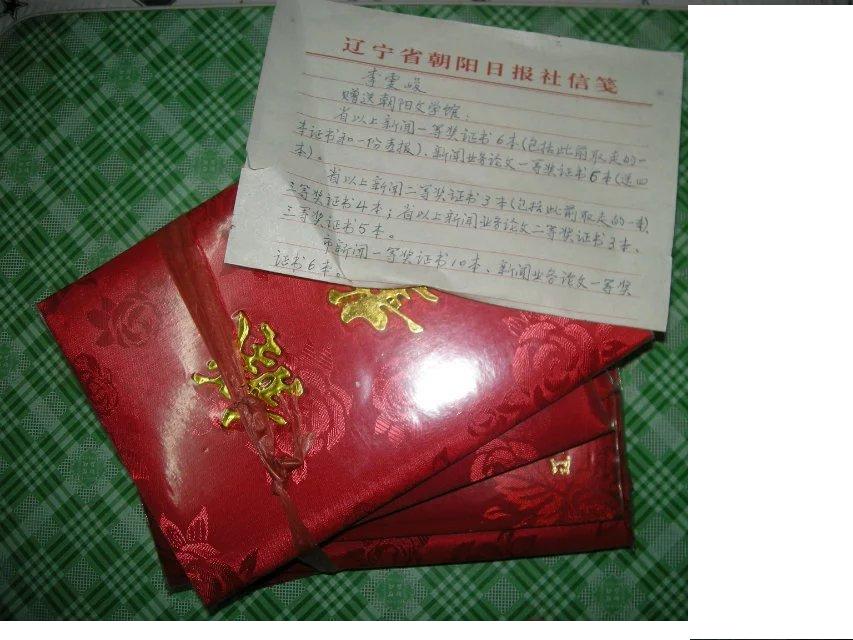 辽宁省朝阳日报社信笺
李云峻
赠送朝阳文学馆:
省以上新闻一等奖证书6本(包括此前取走的一
本证书和一份查报)、新闻业务论文一等奖证书6本(送四
本)。
省以上新闻二等奖证书3本(包括此前取走的一本)
三等奖证书4本;省以上新闻业务论文二等奖证书3本、
三等奖证书5本。
市新闻一等奖证书10本、新闻业务论文一等奖
证书6本。